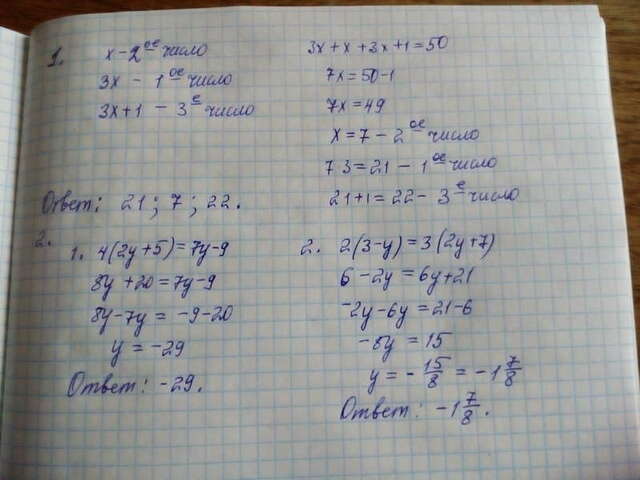 1.
x - 2ое число
3x - 1ое число
3x+1 - 3е число
3x+x+3x+1=50
7x=50-1
7x=49
x=7 - 2ое число
7 3=21 - 1ое число
21+1=22 - 3е число
Ответ: 21; 7; 22.
2.
1. 4(2y+5)=7y-9
8y+20=7y-9
8y-7y = -9-20
y = -29
Ответ: -29.
2. 2(3-y)=3(2y+7)
6-2y=6y+21
-2y-6y=21-6
-8y=15
y=-15/8=-1 7/8
Ответ: -1 7/8.